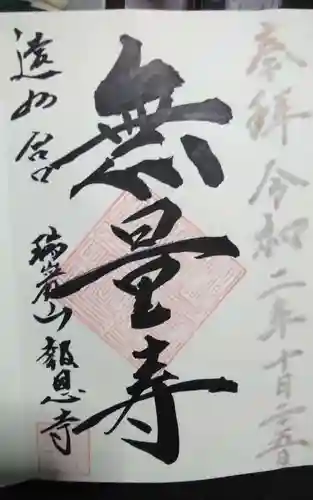 奉拝 令和二年十月二五日
無量寿
瑞巌山 報恩寺